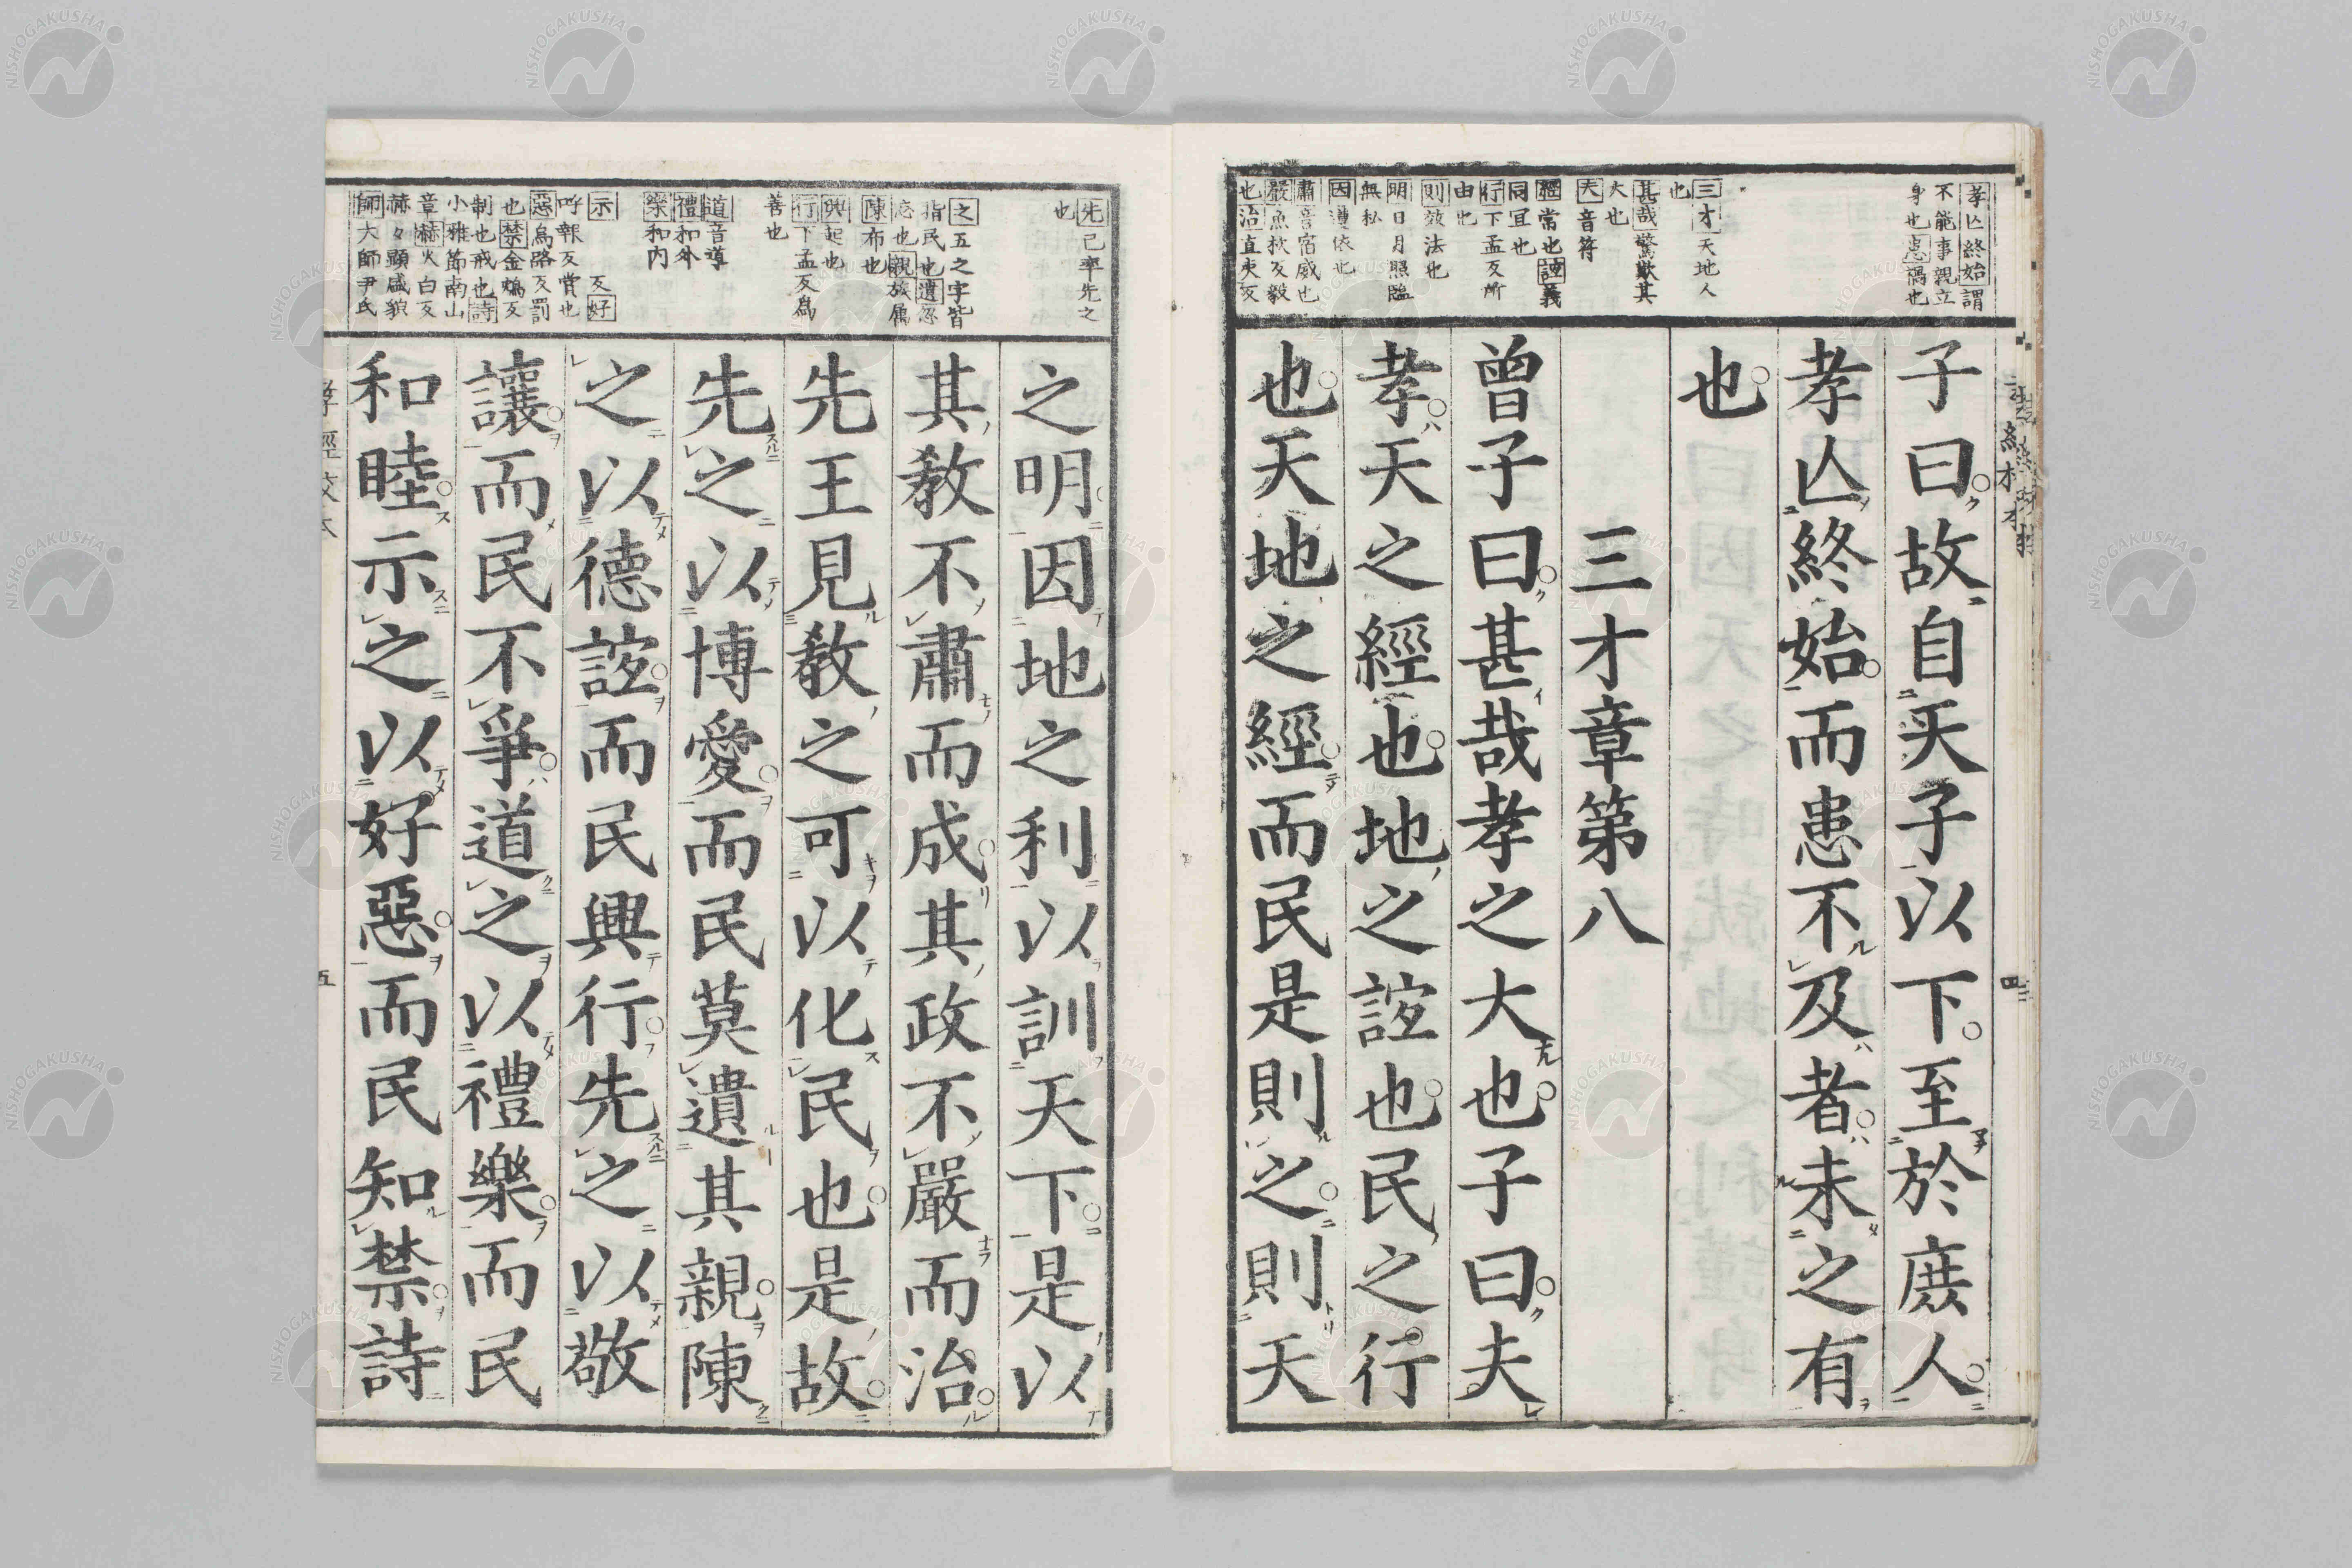 孝亾終始謂
不能事親立
身也患禍也
三才天地人
也
甚哉驚歎其
大也
夫音符
經常也誼義
同宜也
行下孟反所
由也
則效法也
明日月照臨
無私
因遵依也
肅音宿威也
嚴魚杴反毅
也治直吏反
子曰故自天子以下至於庶人
孝亾終始而患不及者未之有
也
三才章第八
曾子曰甚哉孝之大也子曰夫
孝天之經也地之誼也民之行
也天地之經而民是則之則天
四
先己率先之
也
之五之字皆
指民也遺忽
忘也親族属
陳布也
興起也
行下孟反爲
善也
道音導
禮和外
樂和内
示 反好
呼報反賞也
惡烏路反罰
也禁金鴆反
制也戒也詩
小雅節南山
章赫火白反
赫々顯盛貌
師大師尹氏
之明因地之利以訓天下是以
其教不肅而成其政不嚴而治
先王見教之可以化民也是故
先之以博愛而民莫遺其親陳
之以德誼而民興行先之以敬
讓而民不爭道之以禮樂而民
和睦示之以好惡而民知禁詩
五
NISHOGAKUSHA